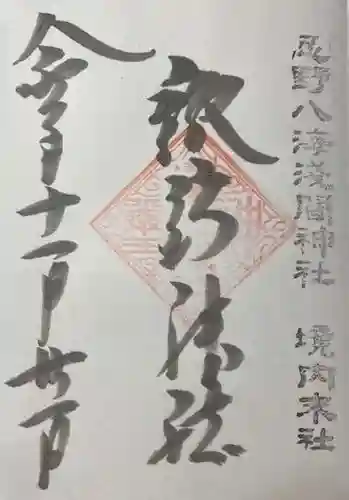 忍野八海淺間神社　境内末社
諏訪神社
令和 年十一月廿一日